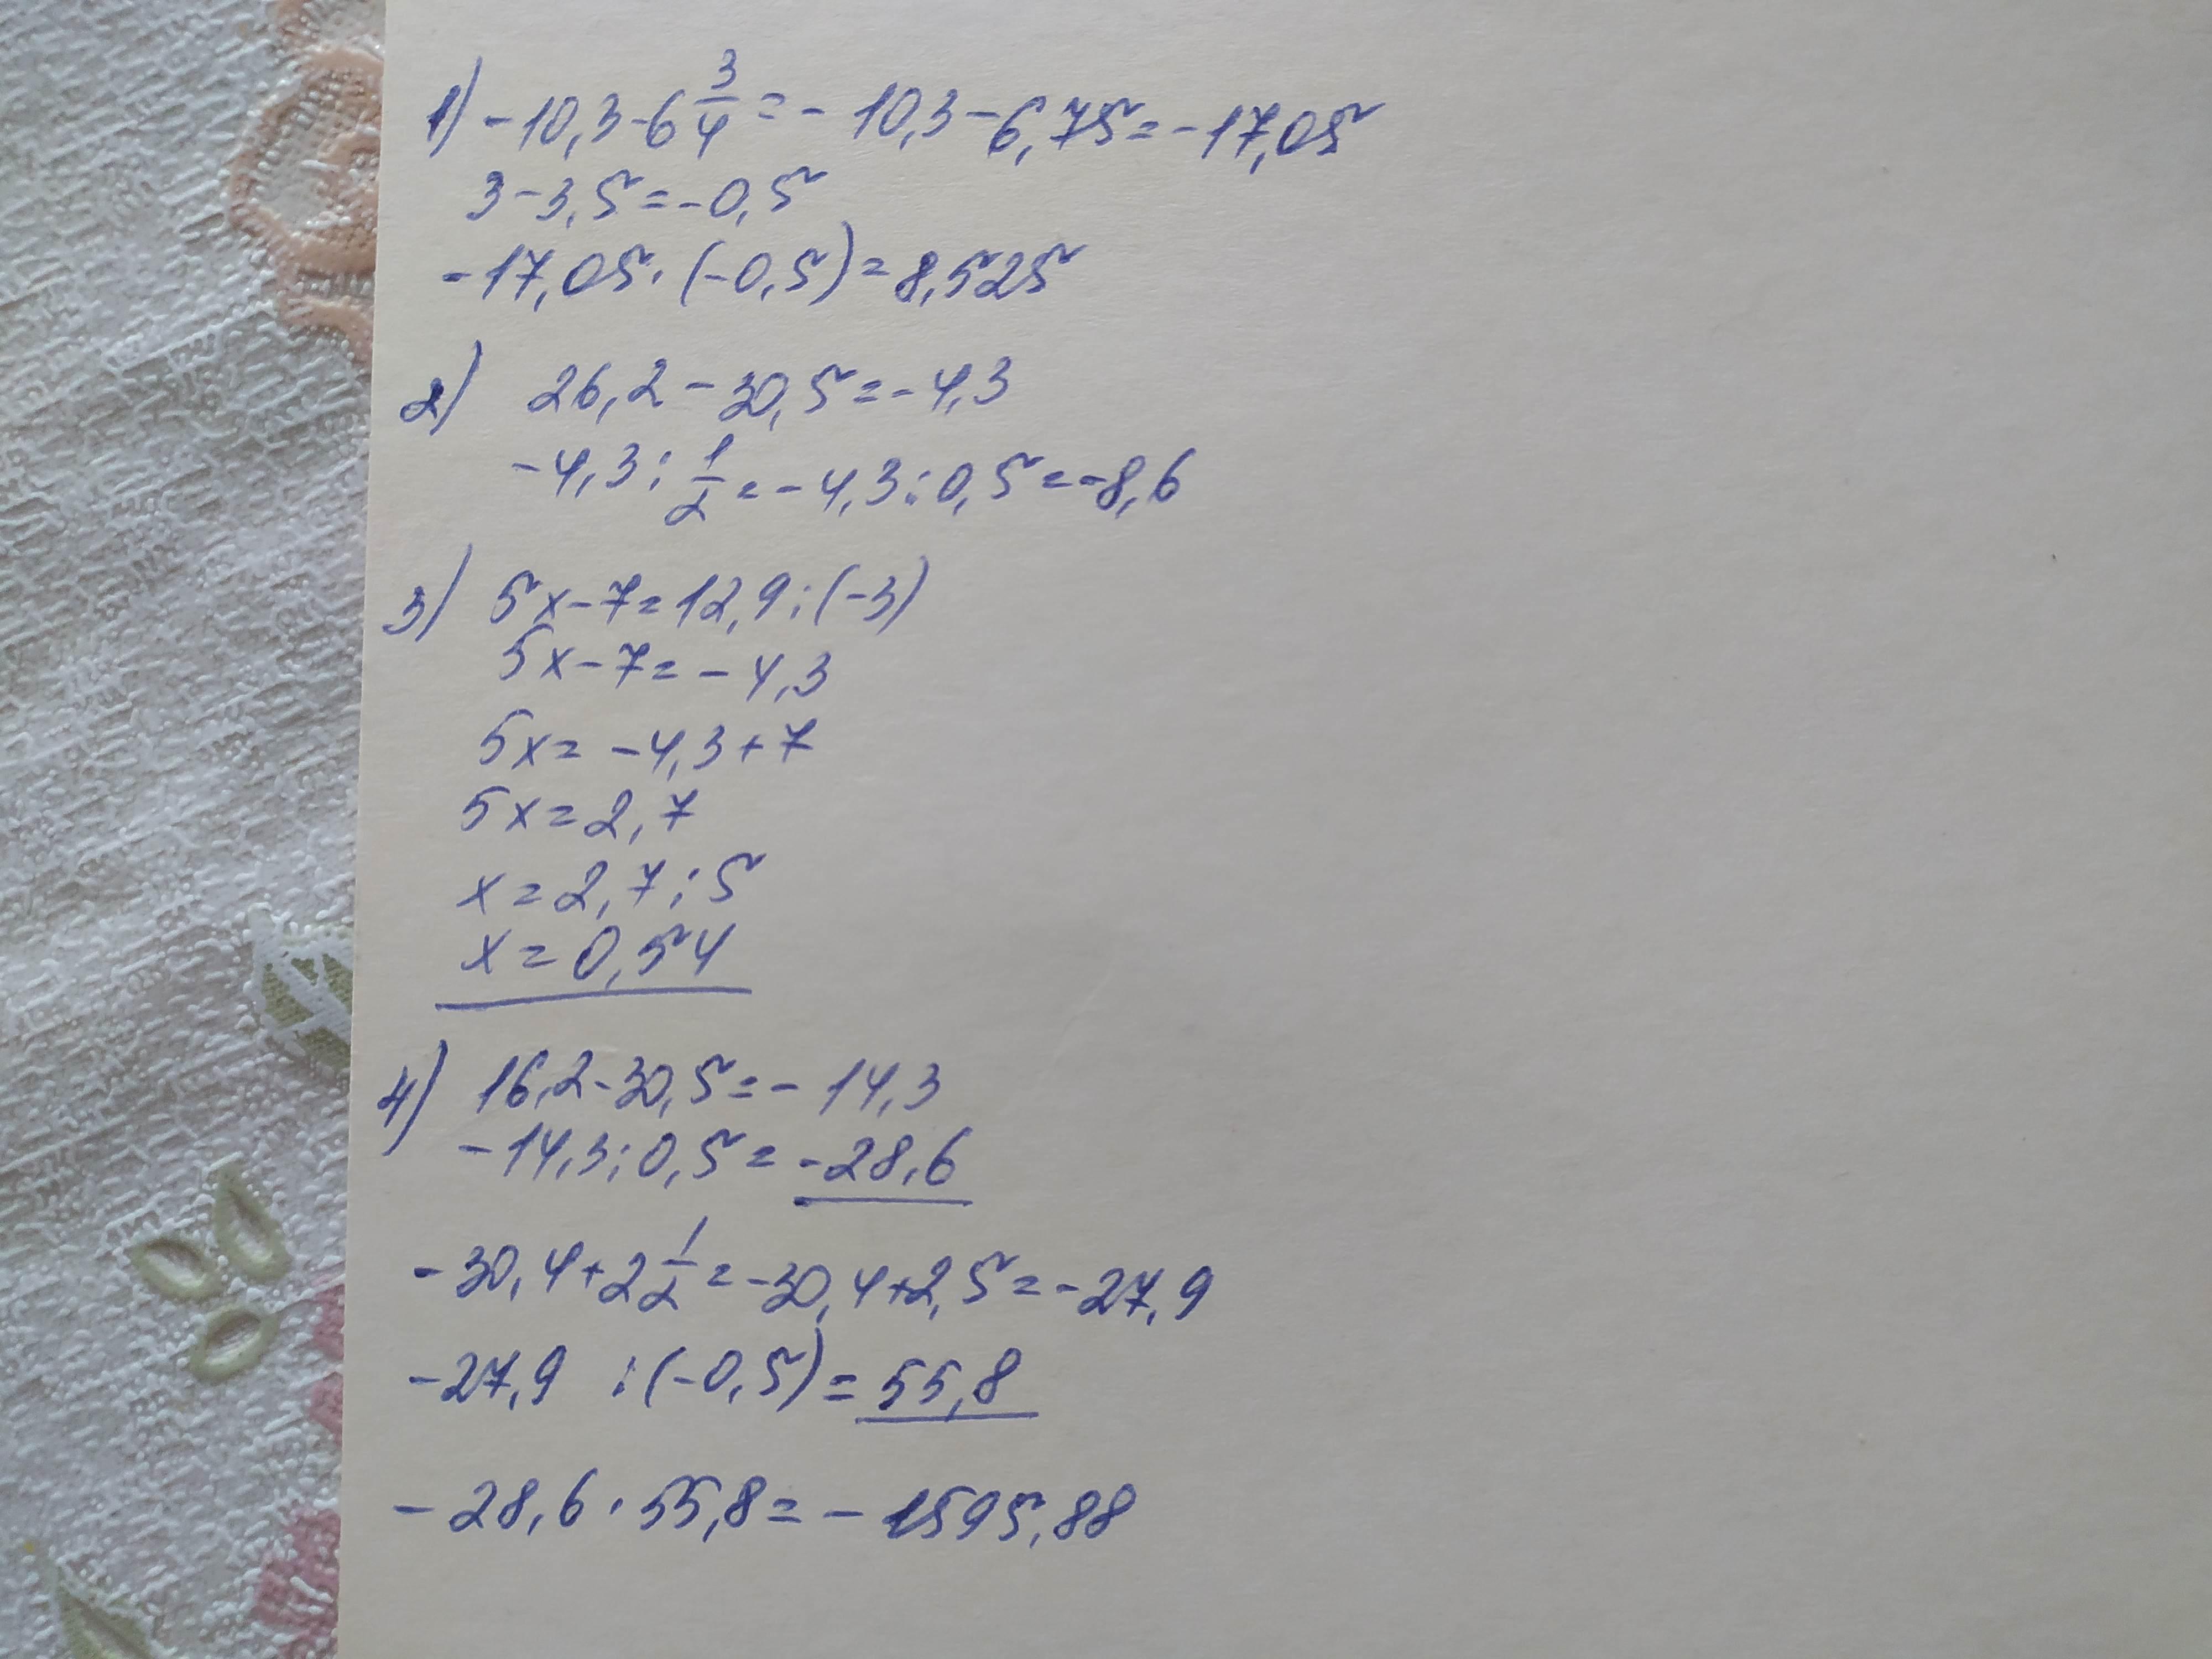 1) -10,3-6 3/4=-10,3-6,75=-17,05
3-3,5=-0,5
-17,05·(-0,5)=8,525
2) 26,2-30,5=-4,3
-4,3:1/2=-4,3:0,5=-8,6
3) 5x-7=12,9:(-3)
5x-7=-4,3
5x=-4,3+7
5x=2,7
x=2,7:5
x=0,54
4) 16,2-30,5=-14,3
-14,3:0,5=-28,6
-30,4+2 1/2=-30,4+2,5=-27,9
-27,9 :(-0,5)=55,8
-28,6·55,8=-1595,88